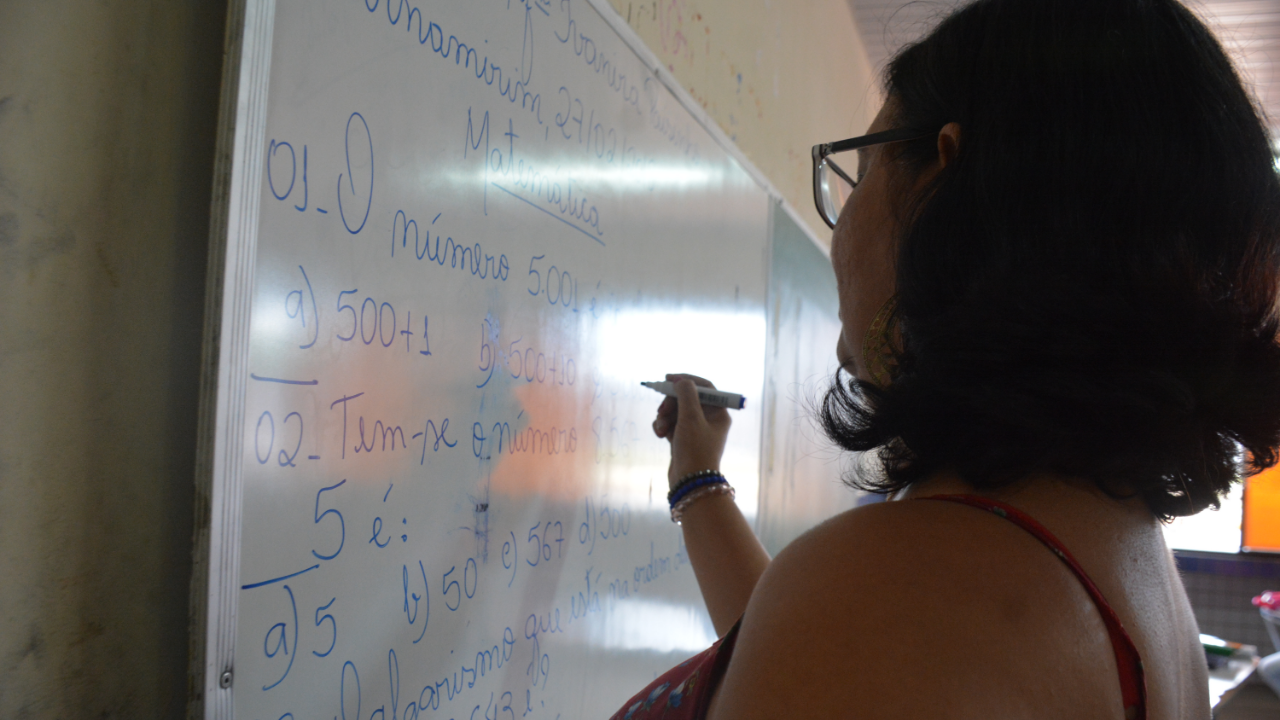 Ivanira
namirim, 27/02/
Matemática
01- O
número 5.001 é
a) 500+1 b) 500+10
02- Tem-se o número
5 é:
a) 5 b) 50 c) 567 d) 500
O algarismo que está na ordem
643 é?